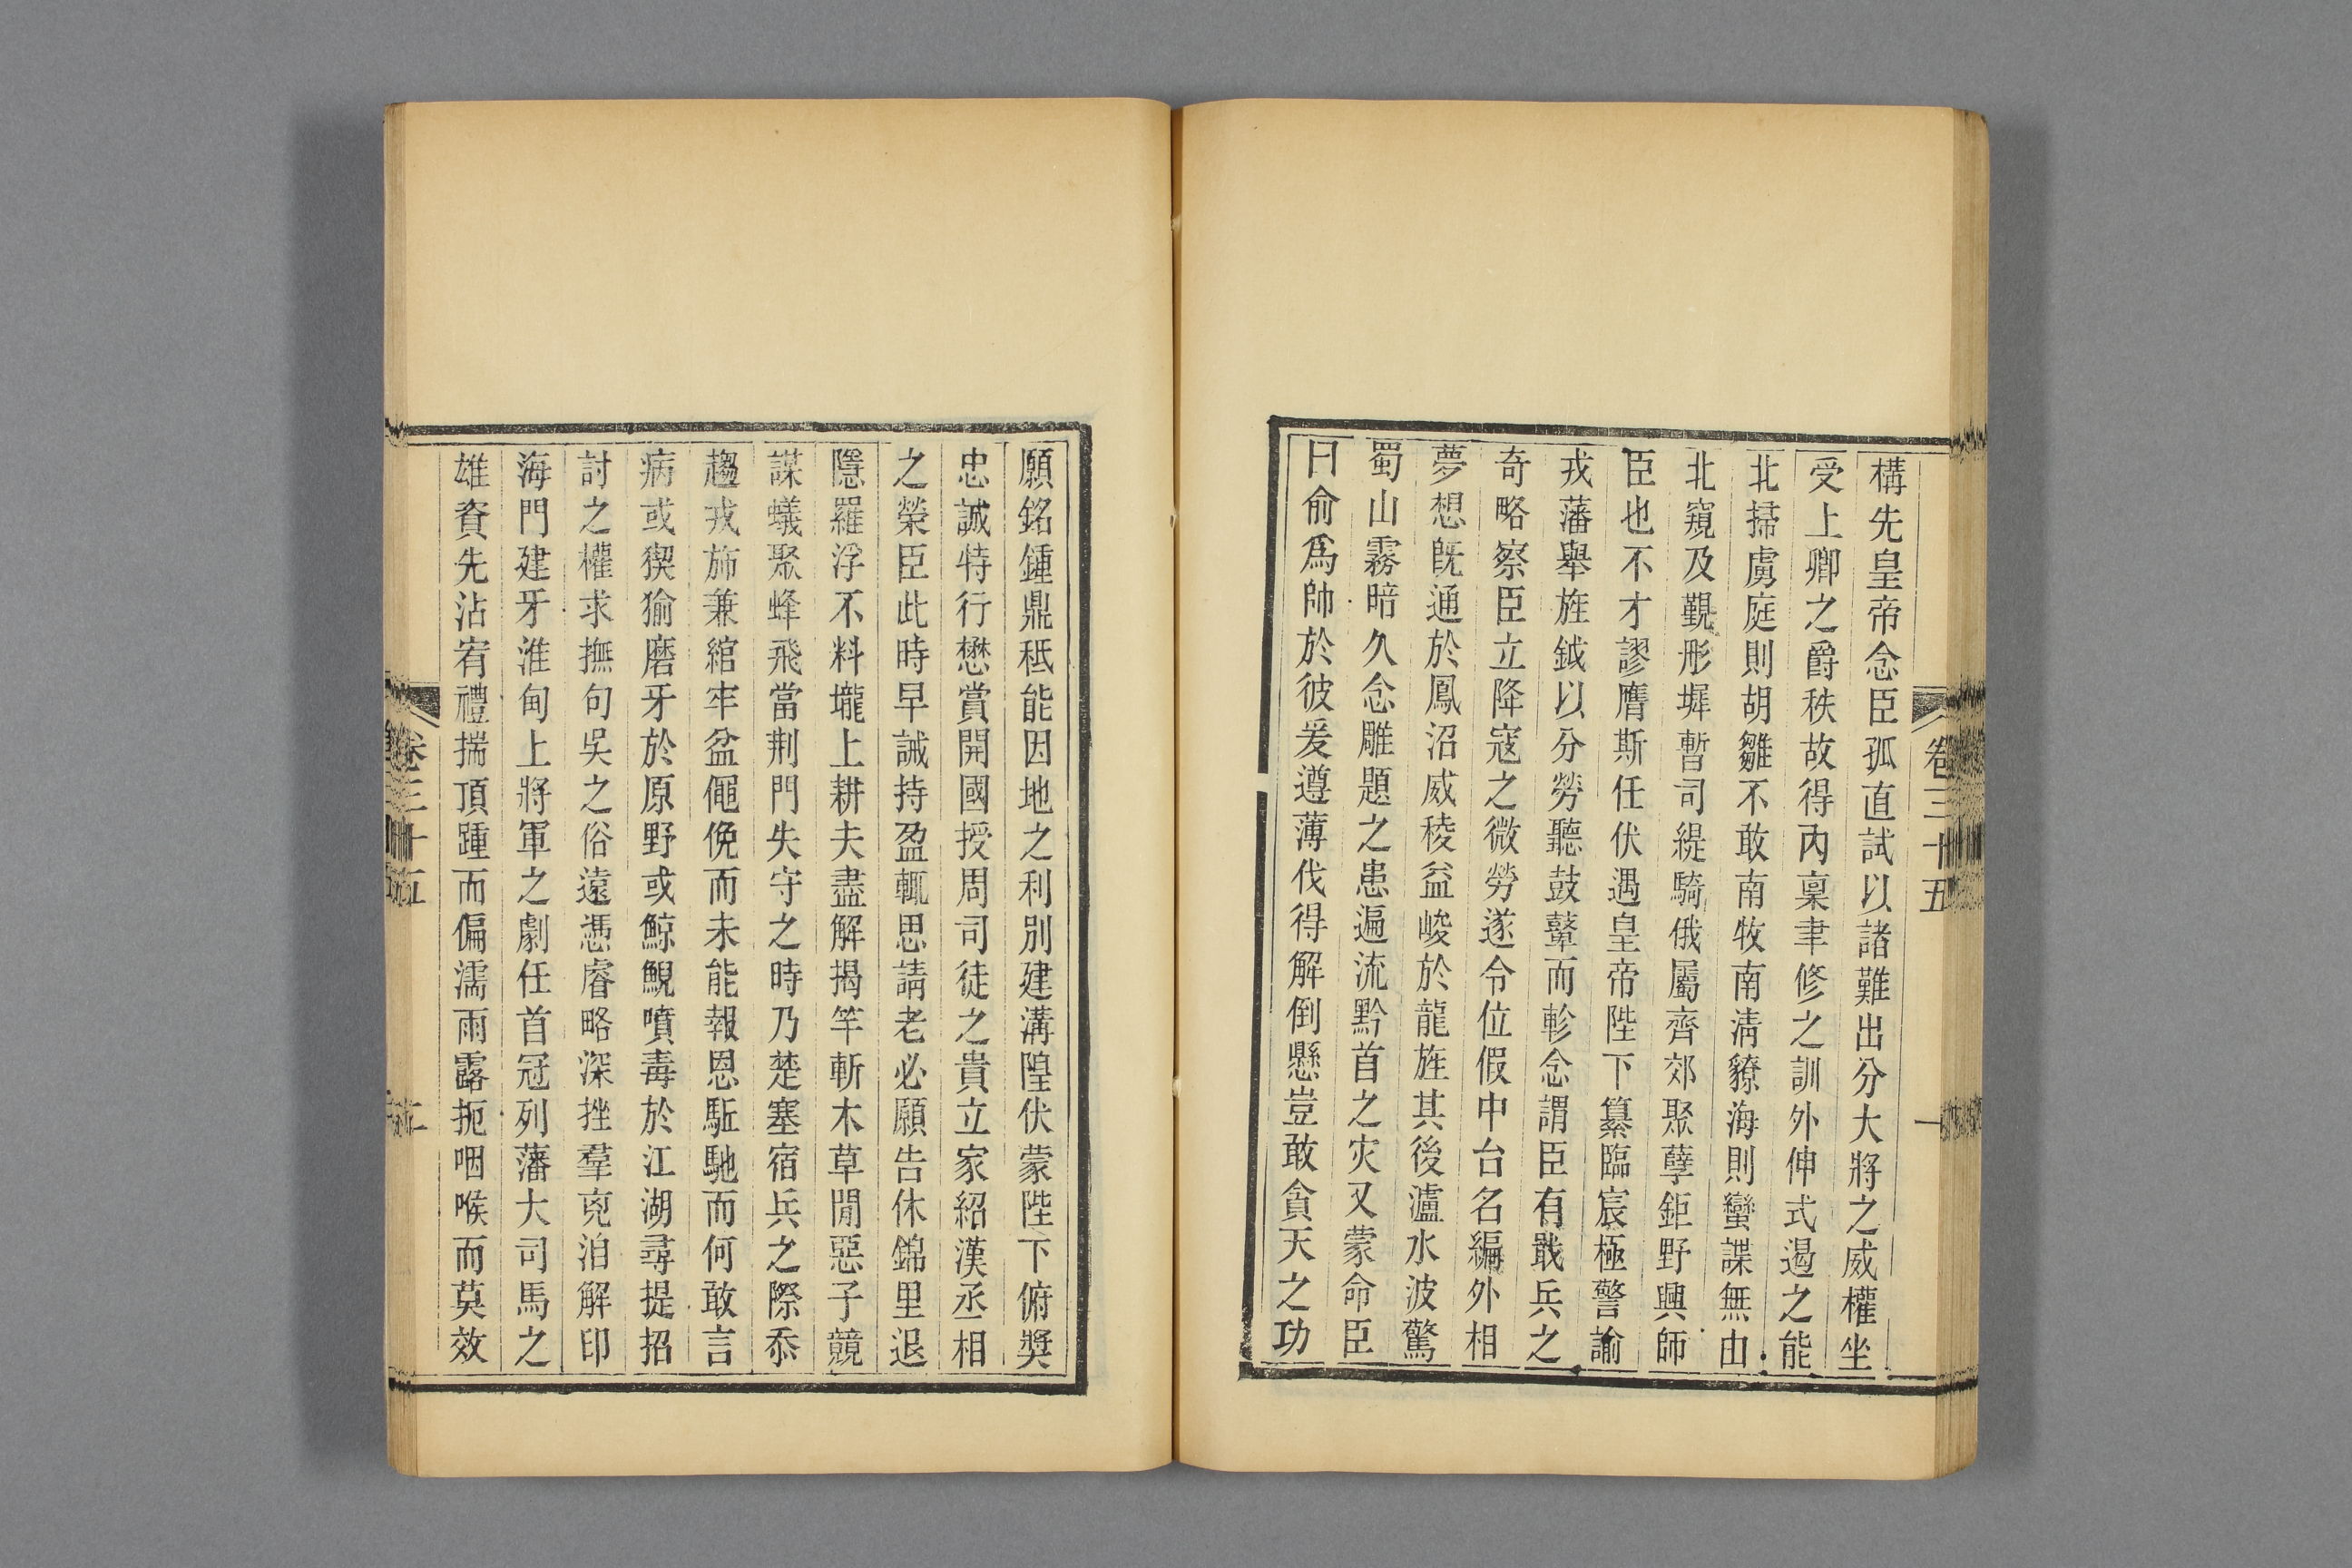 卷三十五
一
構先皇帝念臣孤直試以諸難出分大將之威權坐
受上卿之爵秩故得內稟聿修之訓外伸式遏之能
北掃虜庭則胡雛不敢南牧南淸獠海則蠻諜無由
北窺及覲彤墀暫司緹騎俄屬齊郊聚孽鉅野興師
臣也不才謬膺斯任伏遇皇帝陛下纂臨宸極警諭
戎藩舉旌鉞以分勞聽鼓鼙而軫念謂臣有戢兵之
奇略察臣立降寇之微勞遂令位假中台名編外相
夢想旣通於鳳沼威稜益峻於龍旌其後瀘水波驚
蜀山霧暗久念雕題之患遍流黔首之灾又蒙命臣
曰俞爲帥於彼爰遵薄伐得解倒懸豈敢貪天之功
願銘鍾鼎秖能因地之利別建溝隍伏蒙陛下俯獎
忠誠特行懋賞開國授周司徒之貴立家紹漢丞相
之榮臣此時早誡持盈輒思請老必願告休錦里退
隱羅浮不料壠上耕夫盡解揭竿斬木草閒惡子競
謀蟻聚蜂飛當荆門失守之時乃楚塞宿兵之際忝
趨戎斾兼綰牢盆僶俛而未能報恩駈馳而何敢言
病或猰㺄磨牙於原野或鯨鯢噴毒於江湖尋提招
討之權求撫句吳之俗遠憑睿略深挫羣兇洎解印
海門建牙淮甸上將軍之劇任首冠列藩大司馬之
雄資先沾宥禮揣頂踵而偏濡雨露扼咽喉而莫效
卷三十五